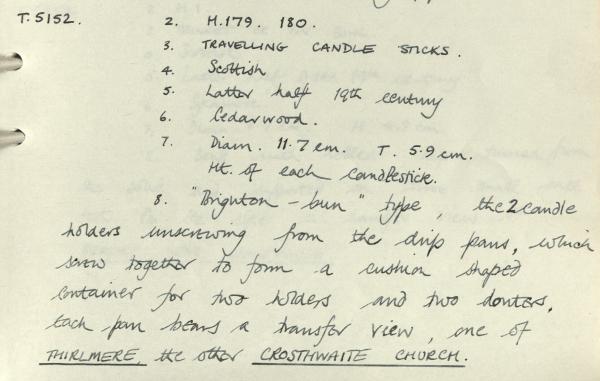 T.5152. 2. H.179. 180.
3. TRAVELLING CANDLE STICKS.
4. Scottish
5. Latter half 19th century
6. Cedarwood.
7. Diam. 11.7 cm. T. 5.9 cm.
Ht. of each candlestick.
8. "Brighton-bun" type, the 2 candle
holders unscrewing from the drip pans, which
screw together to form a cushion shaped
container for two holders and two douters.
Each pan bears a transfer view, one of
THIRLMERE, the other CROSTHWAITE CHURCH.